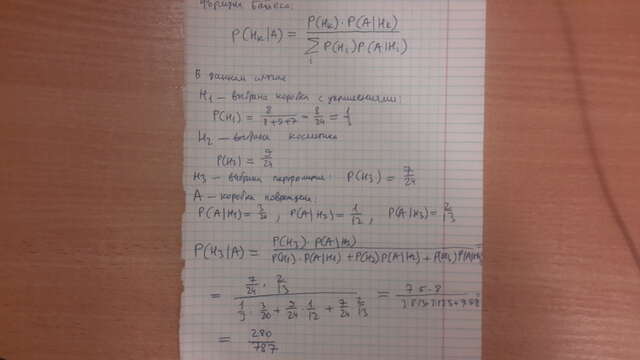 формула Байеса:
P(Hₖ|A) = P(Hₖ)·P(A|Hₖ) / ∑ᵢ P(Hᵢ)P(A|Hᵢ)
В данном
H₁ – выбрана коробка с украшениями:
P(H₁) = 8/(8+9+7) = 8/24 = 1/3
H₂ – выбрана косметика
P(H₂) =
H₃ – выбрана парфюмерия: P(H₃) = 7/24
A – коробка повреждена:
P(A|H₁) = 3/20, P(A|H₂) = 1/12, P(A|H₃) = 2/13
P(H₃|A) = P(H₃)·P(A|H₃) / P(H₁)·P(A|H₁) + P(H₂)P(A|H₂) + P(H₃)P(A|H₃)
= 7/24 · 2/13 / 1/3 · 3/20 + /24 · 1/12 + 7/24 · 2/13 = 7·5·8 /
= 280/787